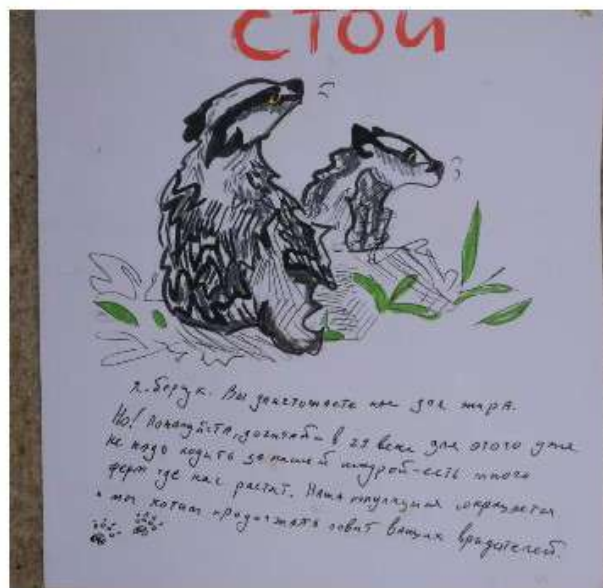 СТОЙ
Я. барсук. Вы уничтожаете нас для жира.
Но! Пожалуйста, в 21 веке для этого уже
не надо ходить за нашей шкурой-есть много
ферм где нас растят. Наша популяция сокращается
мы хотим продолжать ловит ваших вридителей.